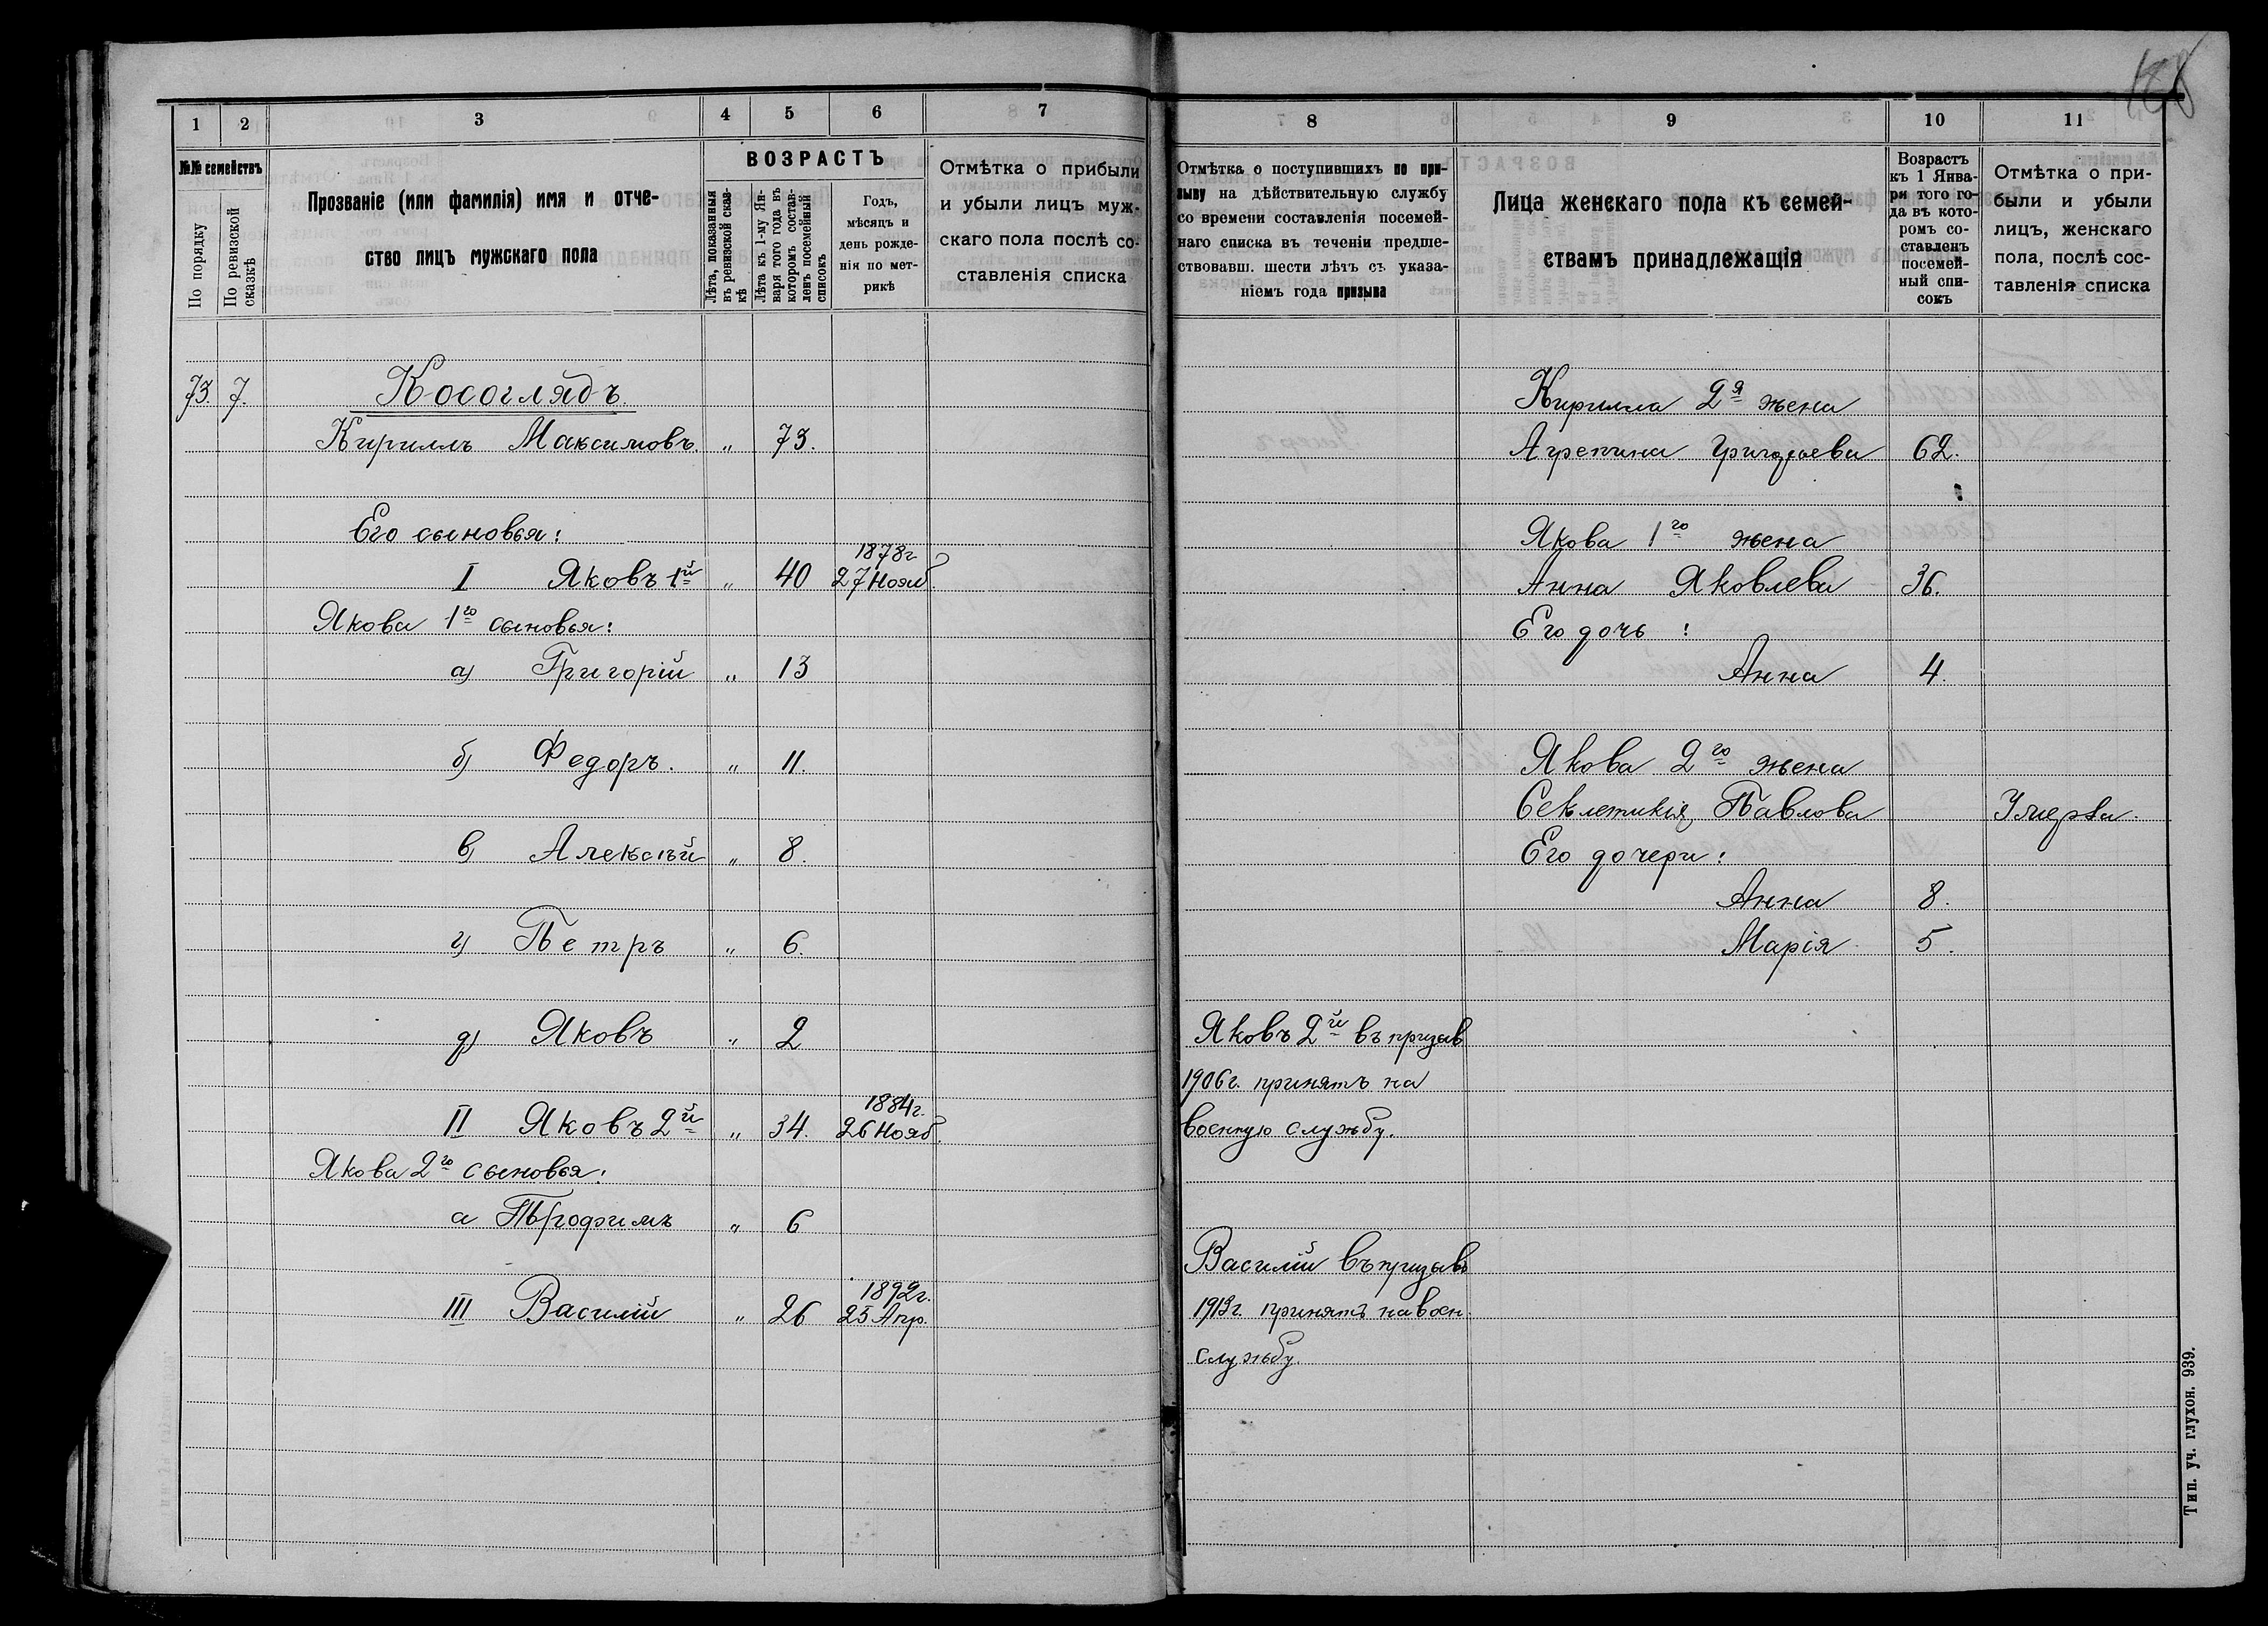 1 2 3 4 5 6 7
№№ семействъ
По порядку
По ревизской сказкѣ
Прозваніе (или фамилія) имя и отче-
ство лицъ мужскаго пола
ВОЗРАСТЪ
Лѣта, показанныя
въ ревизской сказ-
кѣ
Лѣта къ 1-му Ян-
варя того года въ
которомъ состав-
ленъ посемейный
списокъ
Годъ,
мѣсяцъ и
день рожде-
нія по мет-
рикѣ
Отмѣтка о прибыли
и убыли лицъ муж-
скаго пола послѣ со-
ставленія списка
73. 7. Косоглядъ.
Кириллъ Максимовъ. „ 73.
Его сыновья:
1878г
I Яковъ 1й „ 40 27 Нояб.
Якова 1го сыновья:
а) Григорій „ 13
б) Федоръ. „ 11.
в) Алексѣй „ 8.
г) Петръ „ 6.
д) Яковъ „ 2
1884г.
II Яковъ 2й „ 34. 26 Нояб.
Якова 2го сыновья:
а Трофимъ „ 6
1892г.
III Василій „ 26 25 Апр.
8 9 10 11
Отмѣтка о поступившихъ по при-
зыву на дѣйствительную службу
со времени составленія посемей-
наго списка въ теченіи предше-
ствовавш. шести лѣтъ съ указа-
ніемъ года призыва
Лица женскаго пола къ семей-
ствамъ принадлежащія
Возрастъ
къ 1 Янва-
ри того го-
да въ кото-
ромъ со-
ставленъ
посемей-
ный спи-
сокъ
Отмѣтка о при-
были и убыли
лицъ, женскаго
пола, послѣ сос-
тавленія списка
Кирилла 2я жена
Агрепина Григорьева 62.
Якова 1го жена
Анна Яковлева 36.
Его дочь :
Анна 4.
Якова 2го жена
Секлетикія Павлова Умерла.
Его дочери:
Анна 8.
Марія 5.
Яковъ 2й въ призыв
1906г. принятъ на
военную службу.
Василій въ призывъ
1913г. принятъ на воен.
службу.
Тип. уч. глухон. 939.